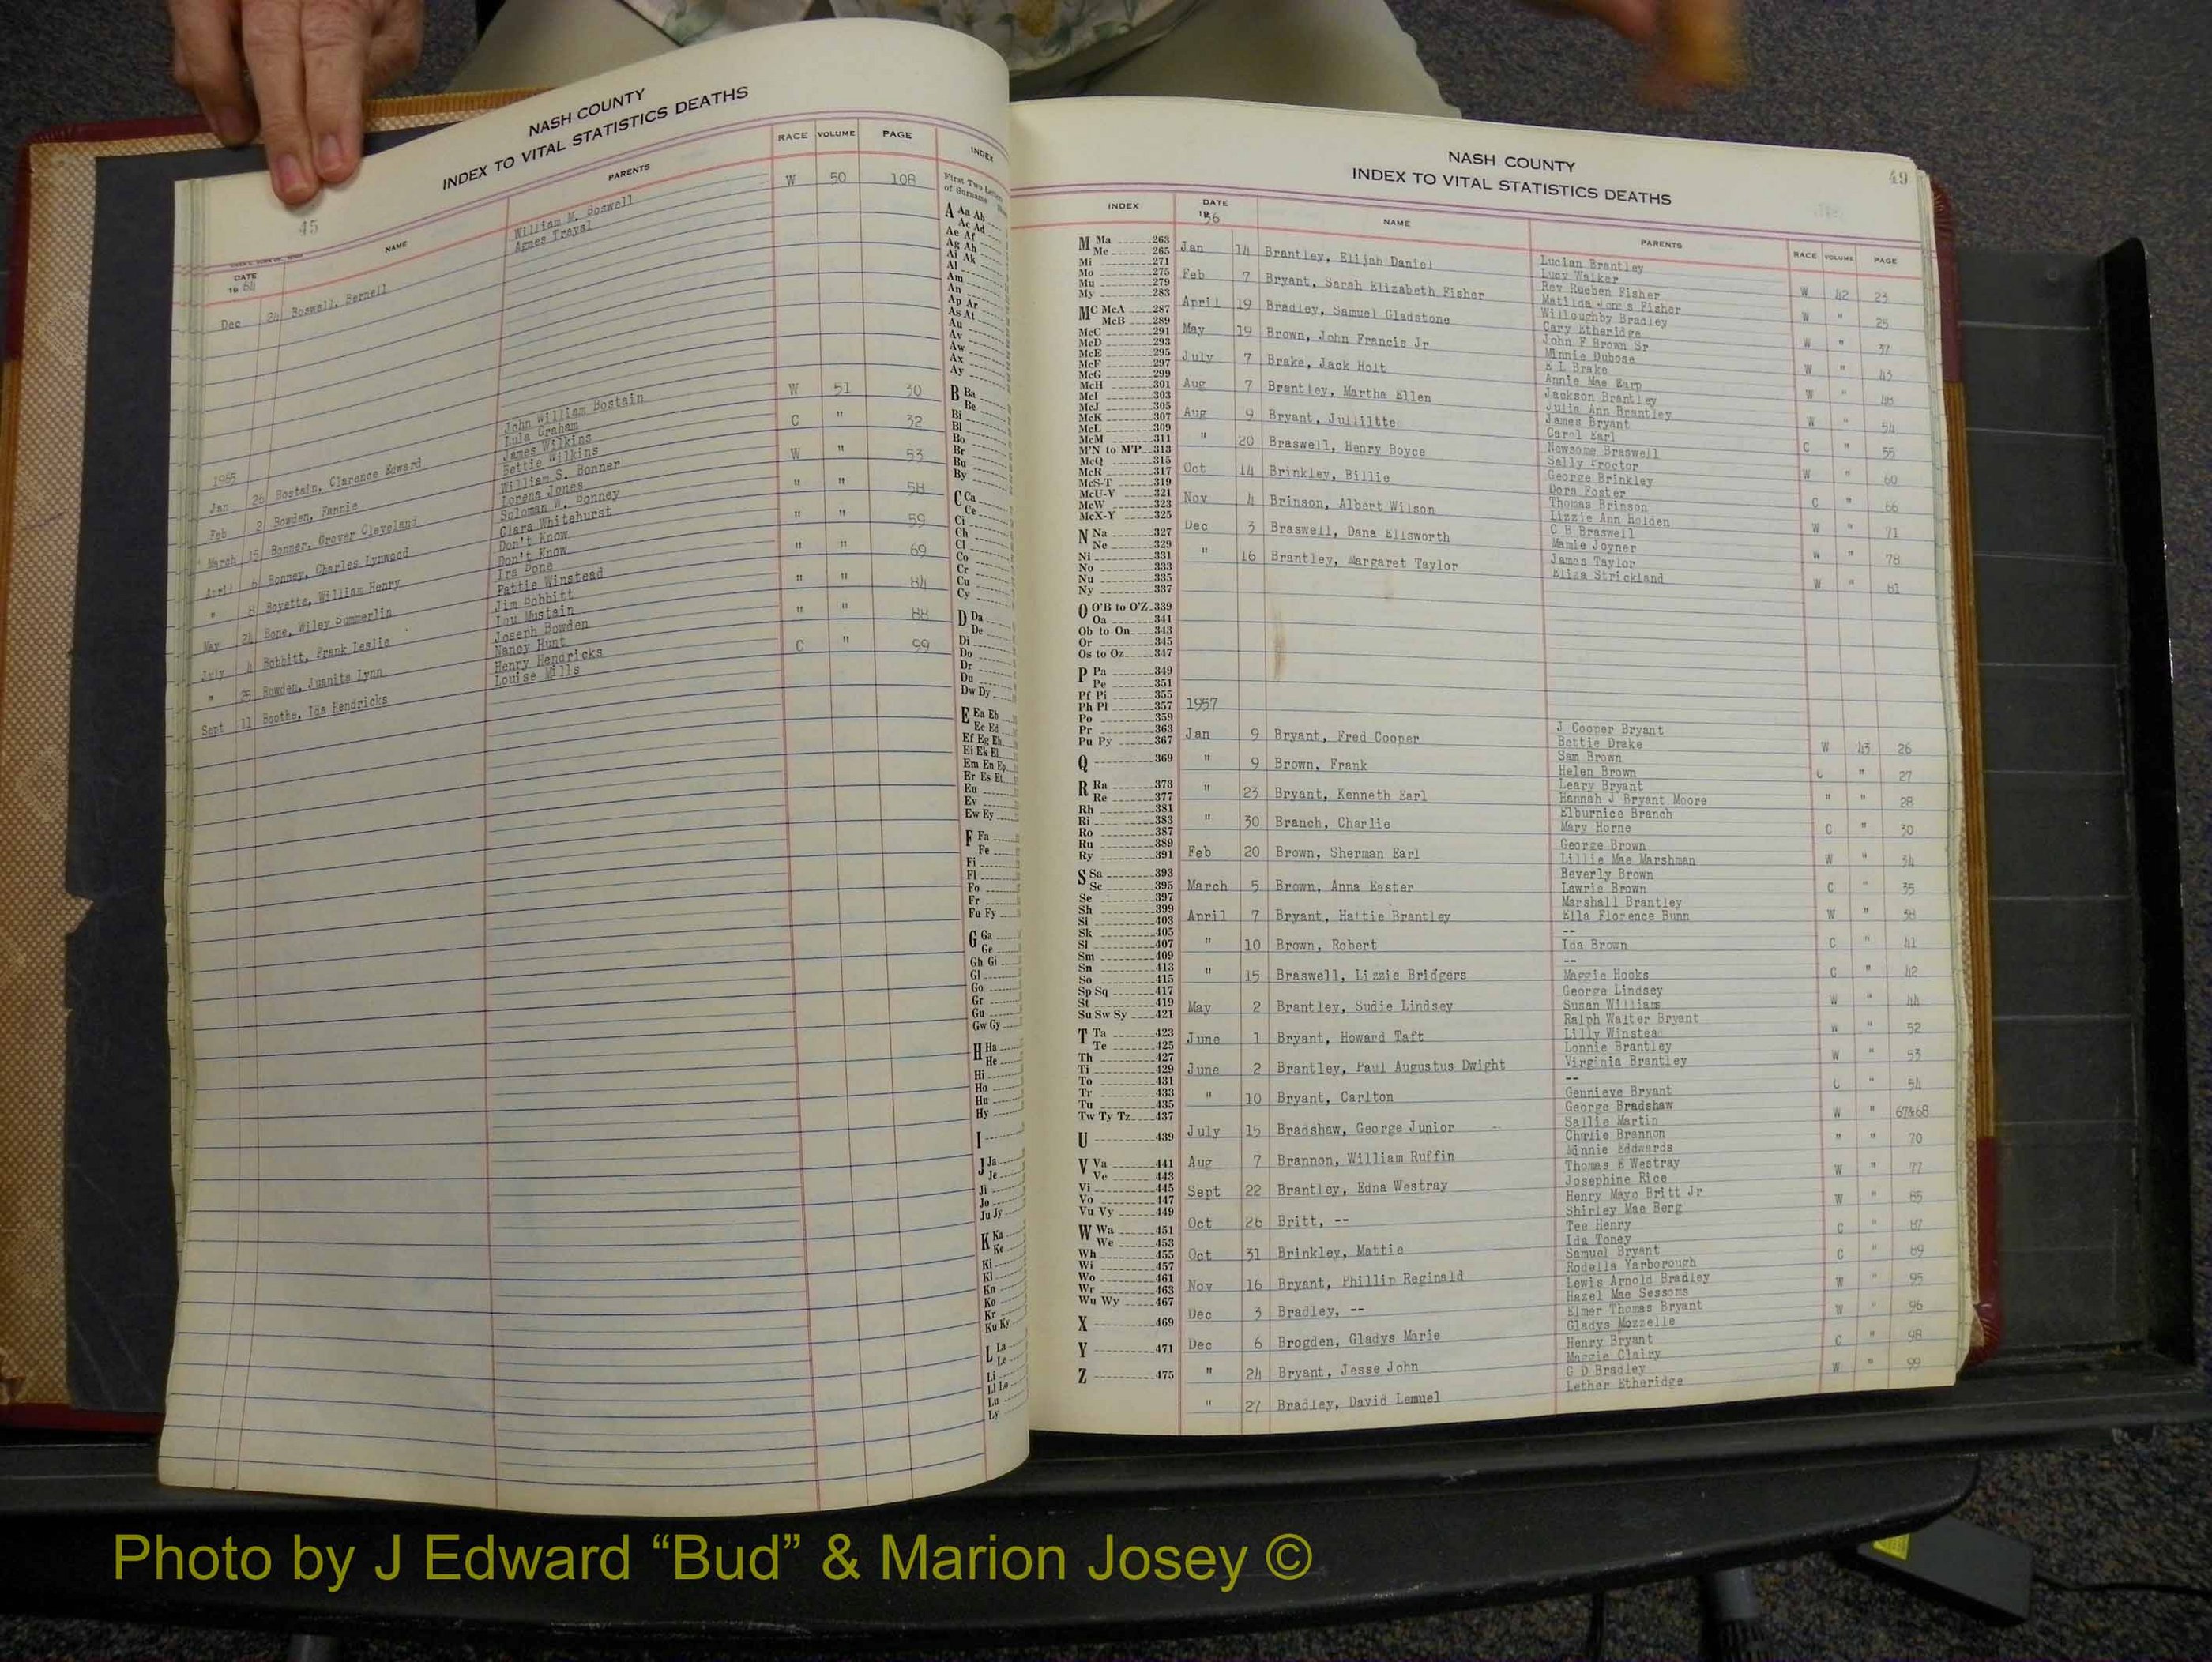 NASH COUNTY
INDEX TO VITAL STATISTICS DEATHS
45
DATE NAME PARENTS RACE VOLUME PAGE INDEX
19 64
Dec 24 Boswell, Bernell William M. Boswell W 50 108
Agnes Trayal
1965
Jan 26 Bostain, Clarence Edward John William Bostain W 51 30
Lula Graham
Feb 2 Bowden, Fannie James Wilkins C " 32
Bettie Wilkins
March 15 Bonner, Grover Cleveland William S. Bonner W " 53
Lorena Jones
April 6 Bonney, Charles Lynwood Soloman W. Bonney " " 58
Clara Whitehurst
" 8 Boyette, William Henry Don't Know " " 59
Don't Know
May 24 Bone, Wiley Summerlin Ira Bone " " 69
Pattie Winstead
July 4 Bobbitt, Frank Leslie Jim Bobbitt " " 84
Lou Mustain
" 25 Bowden, Juanita Lynn Joseph Bowden " " 88
Nancy Hunt
Sept 11 Boothe, Ida Hendricks Henry Hendricks C " 99
Louise Mills
First Two Letters
of Surname
A Aa Ab
Ac Ad
Ae Af
Ag Ah
Ai Ak
Al
Am
An
Ap Ar
As At
Au
Av
Aw
Ax
Ay
B Ba
Be
Bi
Bl
Bo
Br
Bu
By
C Ca
Ce
Ci
Ch
Cl
Co
Cr
Cu
Cy
D Da
De
Di
Do
Dr
Du
Dw Dy
E Ea Eb
Ec Ed
Ef Eg Eh
Ei Ek El
Em En Ep
Er Es Et
Eu
Ev
Ew Ey
F Fa
Fe
Fi
Fl
Fo
Fr
Fu Fy
G Ga
Ge
Gh Gi
Gl
Go
Gr
Gu
Gw Gy
H Ha
He
Hi
Ho
Hu
Hy
I
J Ja
Je
Ji
Jo
Ju Jy
K Ka
Ke
Ki
Kl
Kn
Ko
Kr
Ku Ky
L La
Le
Li
Ll Lo
Lu
Ly
NASH COUNTY
INDEX TO VITAL STATISTICS DEATHS
49
INDEX DATE NAME PARENTS RACE VOLUME PAGE
1956
M Ma 263
Me 265
Mi 271
Mo 275
Mu 279
My 283
MC McA 287
McB 289
McC 291
McD 293
McE 295
McF 297
McG 299
McH 301
McI 303
McJ 305
McK 307
McL 309
McM 311
M'N to M'P 313
McQ 315
McR 317
McS-T 319
McU-V 321
McW 323
McX-Y 325
N Na 327
Ne 329
Ni 331
No 333
Nu 335
Ny 337
O O'B to O'Z 339
Oa 341
Ob to On 343
Or 345
Os to Oz 347
P Pa 349
Pe 351
Pf Pi 355
Ph Pl 357
Po 359
Pr 363
Pu Py 367
Q 369
R Ra 373
Re 377
Rh 381
Ri 383
Ro 387
Ru 389
Ry 391
S Sa 393
Sc 395
Se 397
Sh 399
Si 403
Sk 405
Sl 407
Sm 409
Sn 413
So 415
Sp Sq 417
St 419
Su Sw Sy 421
T Ta 423
Te 425
Th 427
Ti 429
To 431
Tr 433
Tu 435
Tw Ty Tz 437
U 439
V Va 441
Ve 443
Vi 445
Vo 447
Vu Vy 449
W Wa 451
We 453
Wh 455
Wi 457
Wo 461
Wr 463
Wu Wy 467
X 469
Y 471
Z 475
Jan 14 Brantley, Elijah Daniel Lucian Brantley W 42 23
Lucy Walker
Feb 7 Bryant, Sarah Elizabeth Fisher Rev Rueben Fisher W " 25
Matilda Jones Fisher
April 19 Bradley, Samuel Gladstone Willoughby Bradley W " 37
Cary Etheridge
May 19 Brown, John Francis Jr John F Brown Sr W " 43
Minnie Dubose
July 7 Brake, Jack Holt E L Brake W " 48
Annie Mae Earp
Aug 7 Brantley, Martha Ellen Jackson Brantley W " 54
Julia Ann Brantley
Aug 9 Bryant, Julliltte James Bryant C " 55
Carol Earl
" 20 Braswell, Henry Boyce Newsome Braswell W " 60
Sally Proctor
Oct 14 Brinkley, Billie George Brinkley C " 66
Dora Foster
Nov 4 Brinson, Albert Wilson Thomas Brinson W " 71
Lizzie Ann Holden
Dec 3 Braswell, Dana Ellsworth C B Braswell W " 78
Mamie Joyner
" 16 Brantley, Margaret Taylor James Taylor W " 81
Eliza Strickland
1957
Jan 9 Bryant, Fred Cooper J Cooper Bryant W 43 26
Bettie Drake
" 9 Brown, Frank Sam Brown C " 27
Helen Brown
" 23 Bryant, Kenneth Earl Leary Bryant " " 28
Hannah J Bryant Moore
" 30 Branch, Charlie Elburnice Branch C " 30
Mary Horne
Feb 20 Brown, Sherman Earl George Brown W " 34
Lillie Mae Marshman
March 5 Brown, Anna Easter Beverly Brown C " 35
Lawrie Brown
April 7 Bryant, Hattie Brantley Marshall Brantley W " 38
Ella Florence Bunn
" 10 Brown, Robert -- C " 41
Ida Brown
" 15 Braswell, Lizzie Bridgers -- C " 42
Maggie Hooks
May 2 Brantley, Sudie Lindsey George Lindsey W " 44
Susan William
June 1 Bryant, Howard Taft Ralph Walter Bryant W " 52
Lilly Winstea
June 2 Brantley, Paul Augustus Dwight Lonnie Brantley W " 53
Virginia Brantley
" 10 Bryant, Carlton -- C " 54
Gennieve Bryant
July 15 Bradshaw, George Junior George Bradshaw W " 67&68
Sallie Martin
Aug 7 Brannon, William Ruffin Charlie Brannon " " 70
Minnie Eddwards
Sept 22 Brantley, Edna Westray Thomas E Westray W " 77
Josephine Rice
Oct 26 Britt, -- Henry Mayo Britt Jr W " 85
Shirley Mae Berg
Oct 31 Brinkley, Mattie Tee Henry C " 87
Ida Toney
Nov 16 Bryant, Phillip Reginald Samuel Bryant C " 89
Rodella Yarborough
Dec 3 Bradley, -- Lewis Arnold Bradley W " 95
Hazel Mae Sessoms
Dec 6 Brogden, Gladys Marie Elmer Thomas Bryant W " 96
Gladys Mozzelle
" 24 Bryant, Jesse John Henry Bryant C " 98
Maggie Clairy
" 27 Bradley, David Lemuel G D Bradley W " 99
Lether Etheridge
Photo by J Edward “Bud” & Marion Josey ©